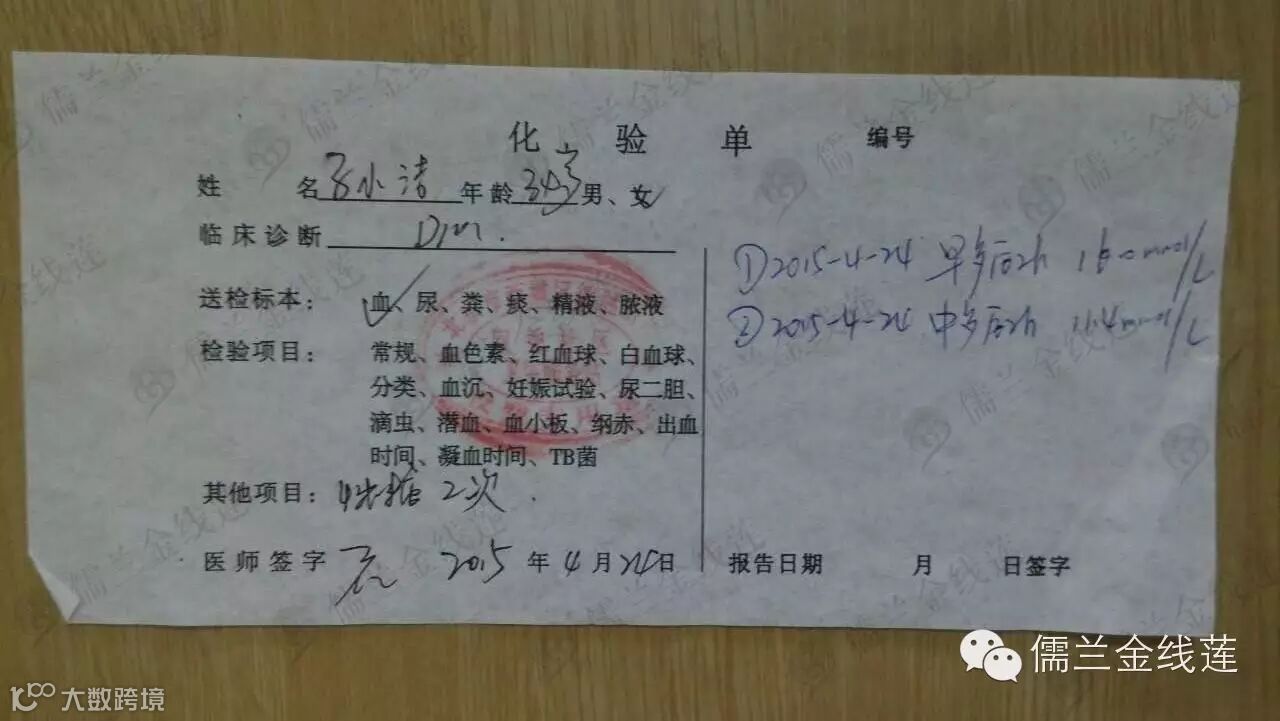 化 验 单 编号
姓 名 小洁 年龄 34岁 男、女
临床诊断 DM.
送检标本: 血、尿、粪、痰、精液、脓液
检验项目: 常规、血色素、红血球、白血球、
分类、血沉、妊娠试验、尿二胆、
滴虫、潜血、血小板、纲赤、出血
时间、凝血时间、TB菌
其他项目: 2次.
医师签字 2015 年 4 月 24 日
①2015-4-24 早餐后2h mmol/L
②2015-4-24 中餐后2h 11.4mmol/L
报告日期 月 日签字
儒兰金线莲
大数跨境